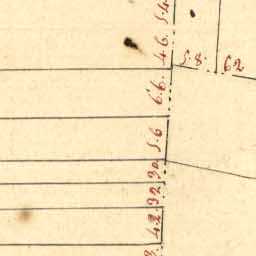 5.4
4.6.
5.8.
62
6.6.
5.6
30
32
42.